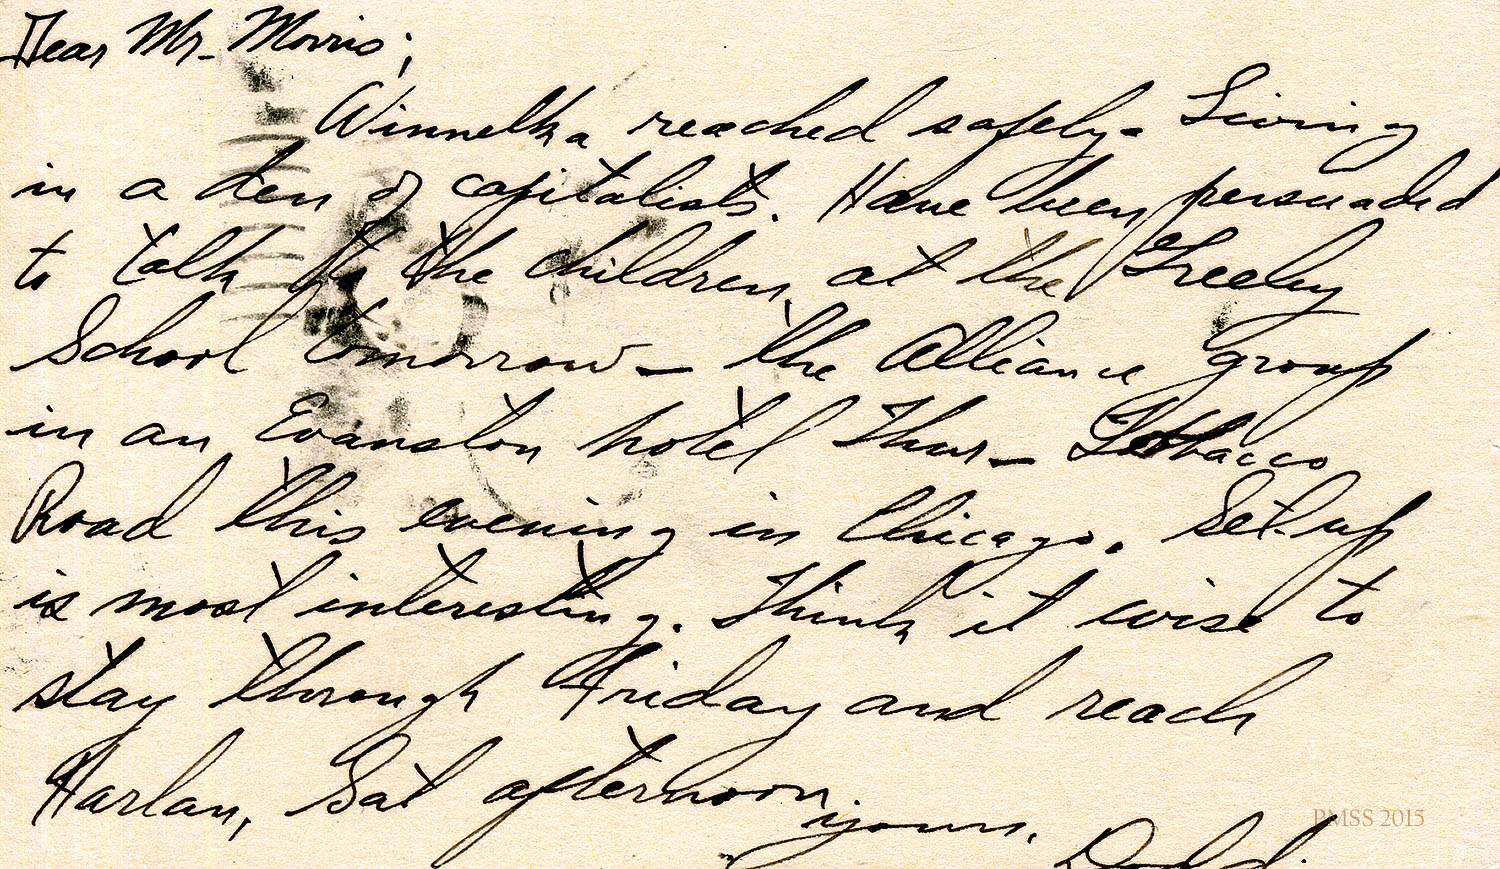 Dear Mr. Morris;
Winnetka reached safely - Living
in a den of capitalists. Have been persuaded
to talk to the children at the Greeley
School tomorrow - the Alliance group
in an Evanston hotel Thur - Tobacco
Road this evening in Chicago. Set-up
is most interesting. Think it wise to
stay through Friday and reach
Harlan, Sat afternoon.
yours,
PMSS 2015